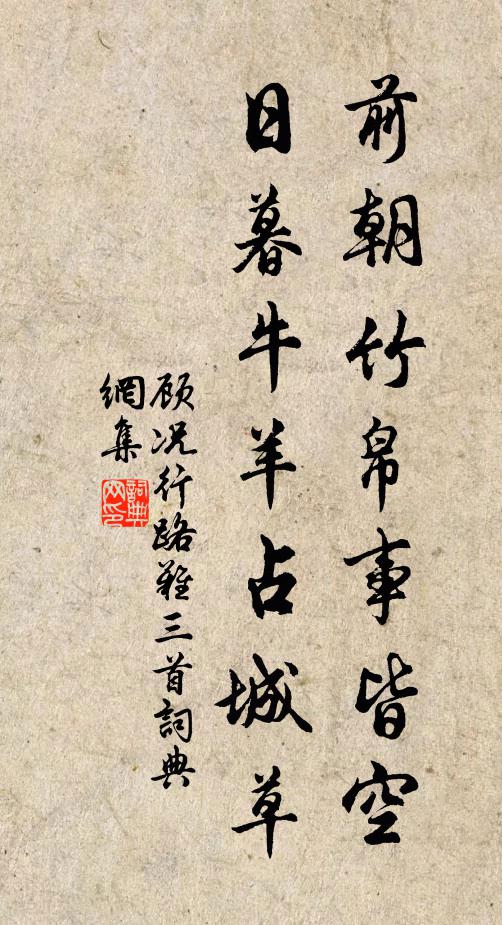 前朝竹帛事皆空
日暮牛羊占城草
顾况行路難三首詞典
網集
詞典网印